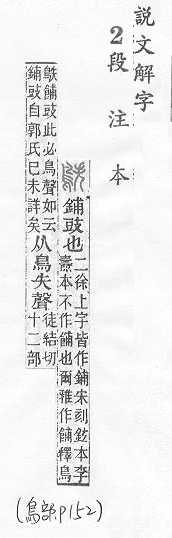 說文解字
2段注本
鴩 鋪豉也 二徐上字皆作鋪宋刻鉉本李
燾本不作餔也爾雅作餔釋鳥
鴩餔豉此必鳥聲如云
鋪豉自郭氏巳未詳矣 从鳥失聲 徒結切
十二部
(鳥部P152)